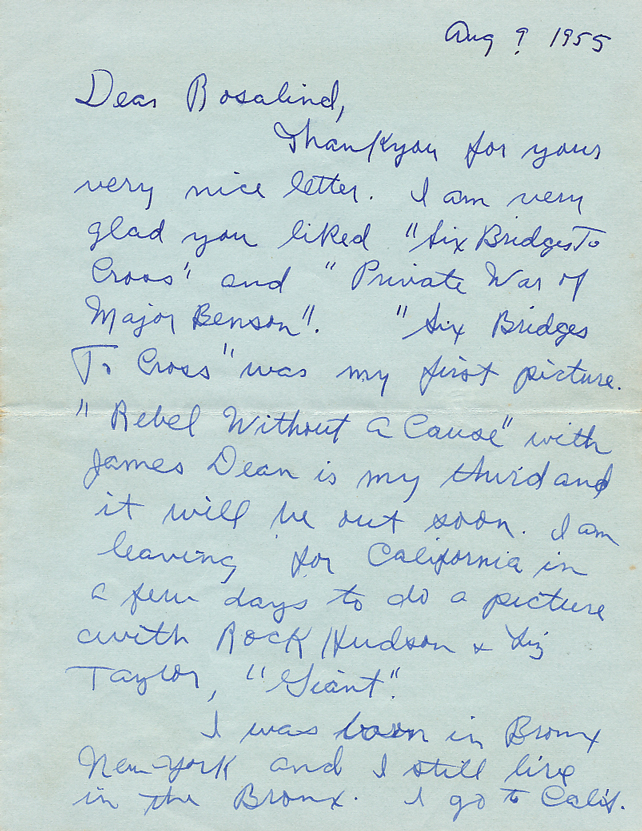 Aug 9 1955
Dear Rosalind,
Thankyou for your
very nice letter. I am very
glad you liked "Six Bridges To
Cross" and "Private War of
Major Benson". "Six Bridges
To Cross" was my first picture.
"Rebel Without A Cause" with
James Dean is my third and
it will be out soon. I am
leaving for California in
a few days to do a picture
with Rock Hudson & Liz
Taylor, "Giant".
I was born in Bronx
New York and I still live
in the Bronx. I go to Calif.